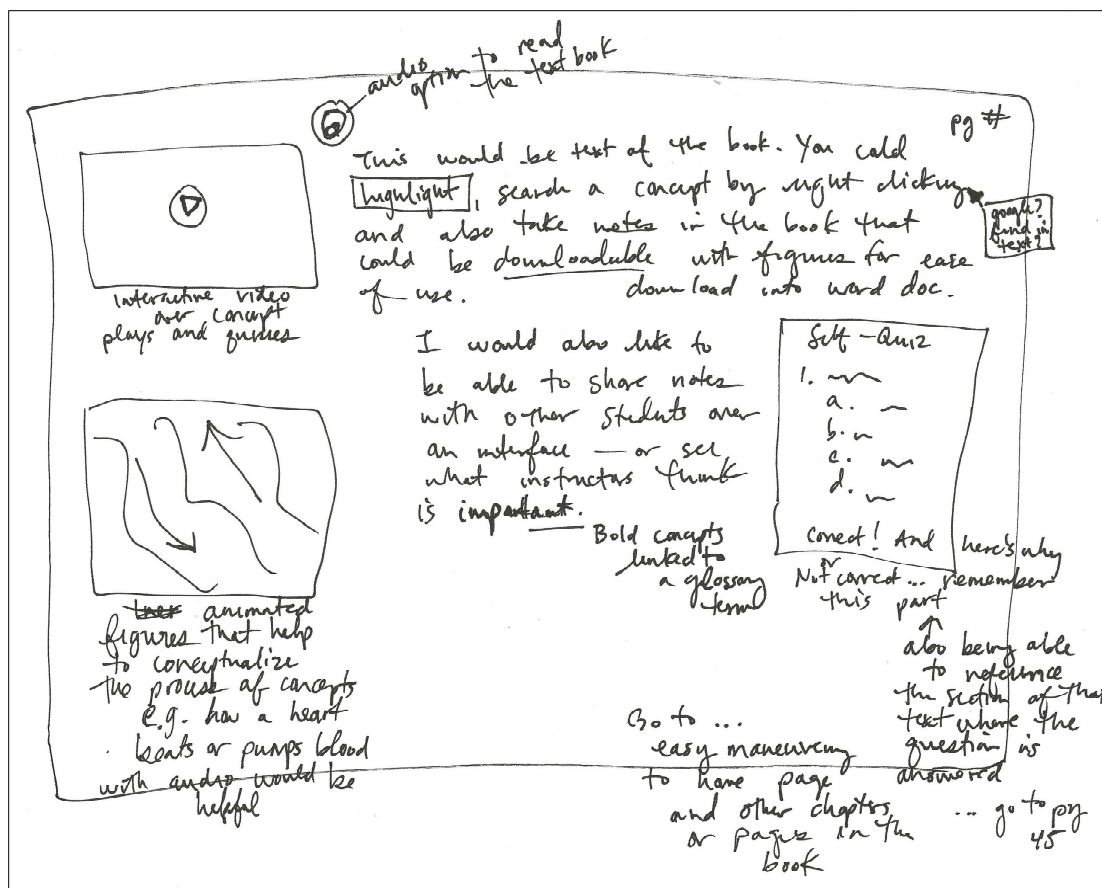 audio option to read the text book
pg #
This would be text of the book. You cold
highlight, search a concept by right clicking
and also take notes in the book that
could be downloadable with figures for ease
of use. download into word doc.
google?
find in
text?
interactive video
over concept
plays and quizzes
I would also like to
be able to share notes
with other students over
an interface — or see
what instructors think
is important.
Bold concepts
linked to
a glossary
term
Self-Quiz
1.
a.
b.
c.
d.
Correct! And here's why
or
Not correct... remember
this part
also being able
to reference
the section of that
text where the
question is
answered
... go to pg
45
animated
figures that help
to conceptualize
the process of concepts
e.g. how a heart
beats or pumps blood
with audio would be
helpful
Go to ...
easy maneuvering
to home page
and other chapters
or pages in the
book